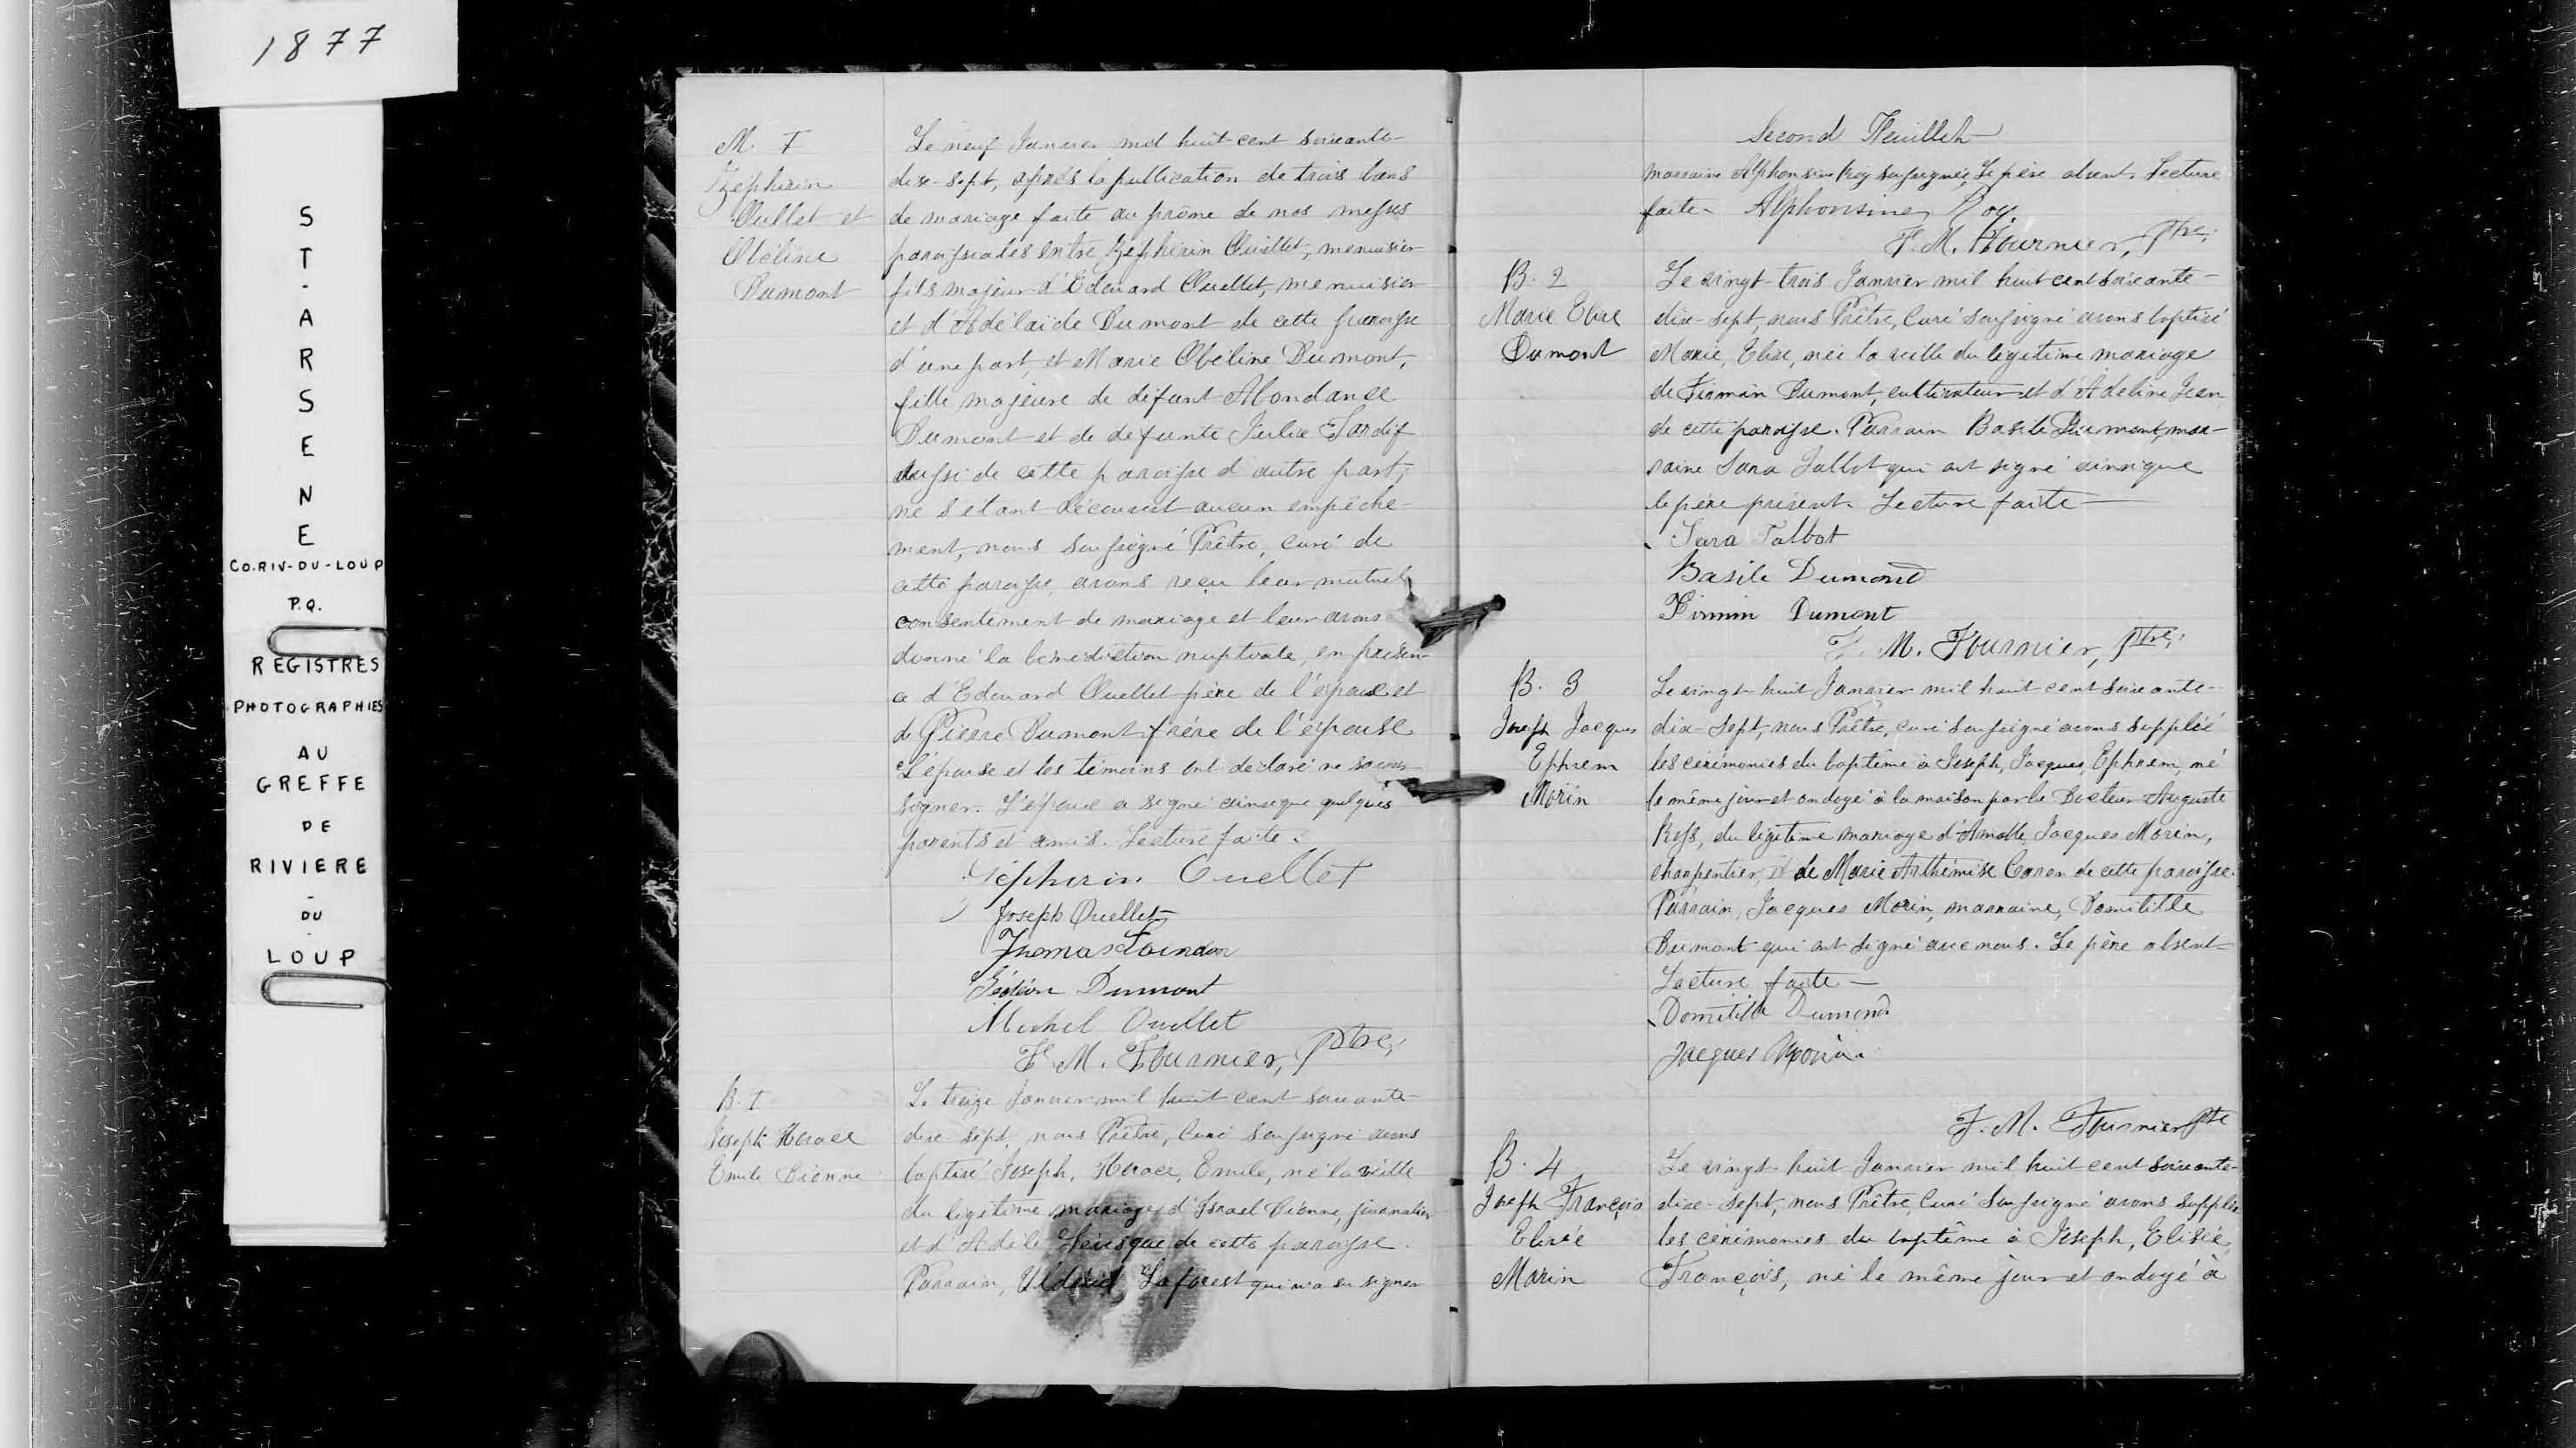 1877
ST. ARSENE
CO. RIV-DU-LOUP
P.Q.
REGISTRES
PHOTOGRAPHIES
AU
GREFFE
DE
RIVIERE
-
DU
-
LOUP
M. I
Zéphirin
Ouellet et
Obéline
Dumont
Le neuf Janvier mil huit cent soixante-
dix-sept, après la publication de trois bans
de mariage faite au prône de nos messes
paroissiales entre Zéphirin Ouellet, menuisier
fils majeur d'Edouard Ouellet, menuisier
et d'Adélaïde Dumont de cette paroisse
d'une part, et Marie Obéline Dumont,
fille majeure de défunt Abondance
Dumont et de defunte Julie Tardif
aussi de cette paroisse d'autre part;
ne s'étant découvert aucun empêche-
ment, nous soussigné Prêtre, curé de
cette paroisse, avons reçu leur mutuel
consentement de mariage et leur avons
donné la bénédiction nuptiale, en présen-
ce d'Edouard Ouellet père de l'époux et
de Pierre Dumont frère de l'épouse
L'épouse et les témoins ont déclaré ne savoir
signer. L'époux a signé ainsi que quelques
parents et amis. Lecture faite.
Zéphirin Ouellet
Joseph Ouellet
Thomas
Dumont
Michel Ouellet
F. M. Fournier, Ptre,
B. I
Joseph Horace
Emile Dionne
Le treize Janvier mil huit cent soixante-
dix-sept, nous Prêtre, Curé soussigné avons
baptisé Joseph, Horace, Emile, né la veille
du légitime mariage d'Israel Dionne, journalier
et d'Adèle Levesque de cette paroisse.
Parrain, Uldéric Laforest qui n'a su signer
Second Feuillet
marraine Alphonsine Roy soussignée. Le père absent. Lecture
faite. Alphonsine Roy
F. M. Fournier, Ptre,
B. 2
Marie Elise
Dumont
Le vingt-trois Janvier mil huit cent soixante-
dix-sept, nous Prêtre, Curé soussigné avons baptisé
Marie, Elise, née la veille du légitime mariage
de Firmin Dumont, cultivateur et d'Adeline Jean
de cette paroisse. Parrain Basile Dumont, mar-
raine Sara Talbot qui ont signé ainsi que
le père présent. Lecture faite
Sara Talbot
Basile Dumond
Firmin Dumont
F. M. Fournier, Ptre,
B. 3
Joseph Jacques
Ephrem
Morin
Le vingt-huit Janvier mil huit cent soixante-
dix-sept, nous Prêtre, curé soussigné avons suppléé
les cérémonies du baptême à Joseph, Jacques, Ephrem, né
le même jour et ondoyé à la maison par le Docteur Auguste
du légitime mariage d'Amable Jacques Morin,
charpentier, et de Marie Arthémise Caron de cette paroisse.
Parrain, Jacques Morin, marraine, Domitille
Dumont qui ont signé avec nous. Le père absent
Lecture faite -
Domitille Dumond
Jacques Morin
F. M. Fournier Ptre
B. 4
Joseph François
Elisée
Morin
Le vingt-huit Janvier mil huit cent soixante-
dix-sept, nous Prêtre, Curé soussigné avons suppléé
les cérémonies du baptême à Joseph, Elisée,
François, né le même jour et ondoyé à